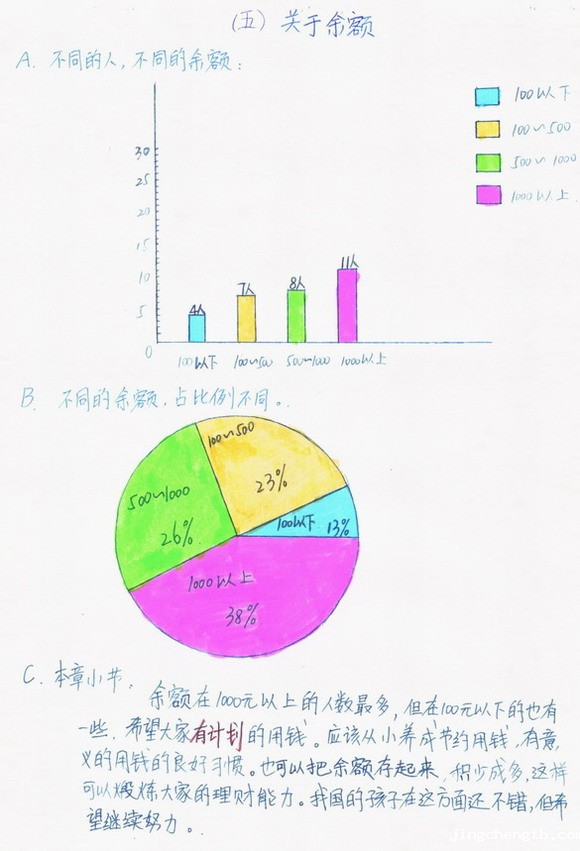 （五）关于余额
A. 不同的人，不同的余额：
100以下
100~500
500~1000
1000以上
30
25
20
15
10
5
0
4人
7人
8人
11人
100以下
100~500
500~1000
1000以上
B. 不同的余额，占比例不同。
100~500
23%
500~1000
26%
100以下 13%
1000以上
38%
C. 本章小节：
余额在1000元以上的人数最多，但在100元以下的也有
一些．希望大家有计划的用钱。应该从小养成节约用钱，有意
义的用钱的良好习惯。也可以把余额存起来，积少成多，这样
可以煅炼大家的理财能力。我国的孩子在这方面还不错，但希
望继续努力。
jingchengtb.com